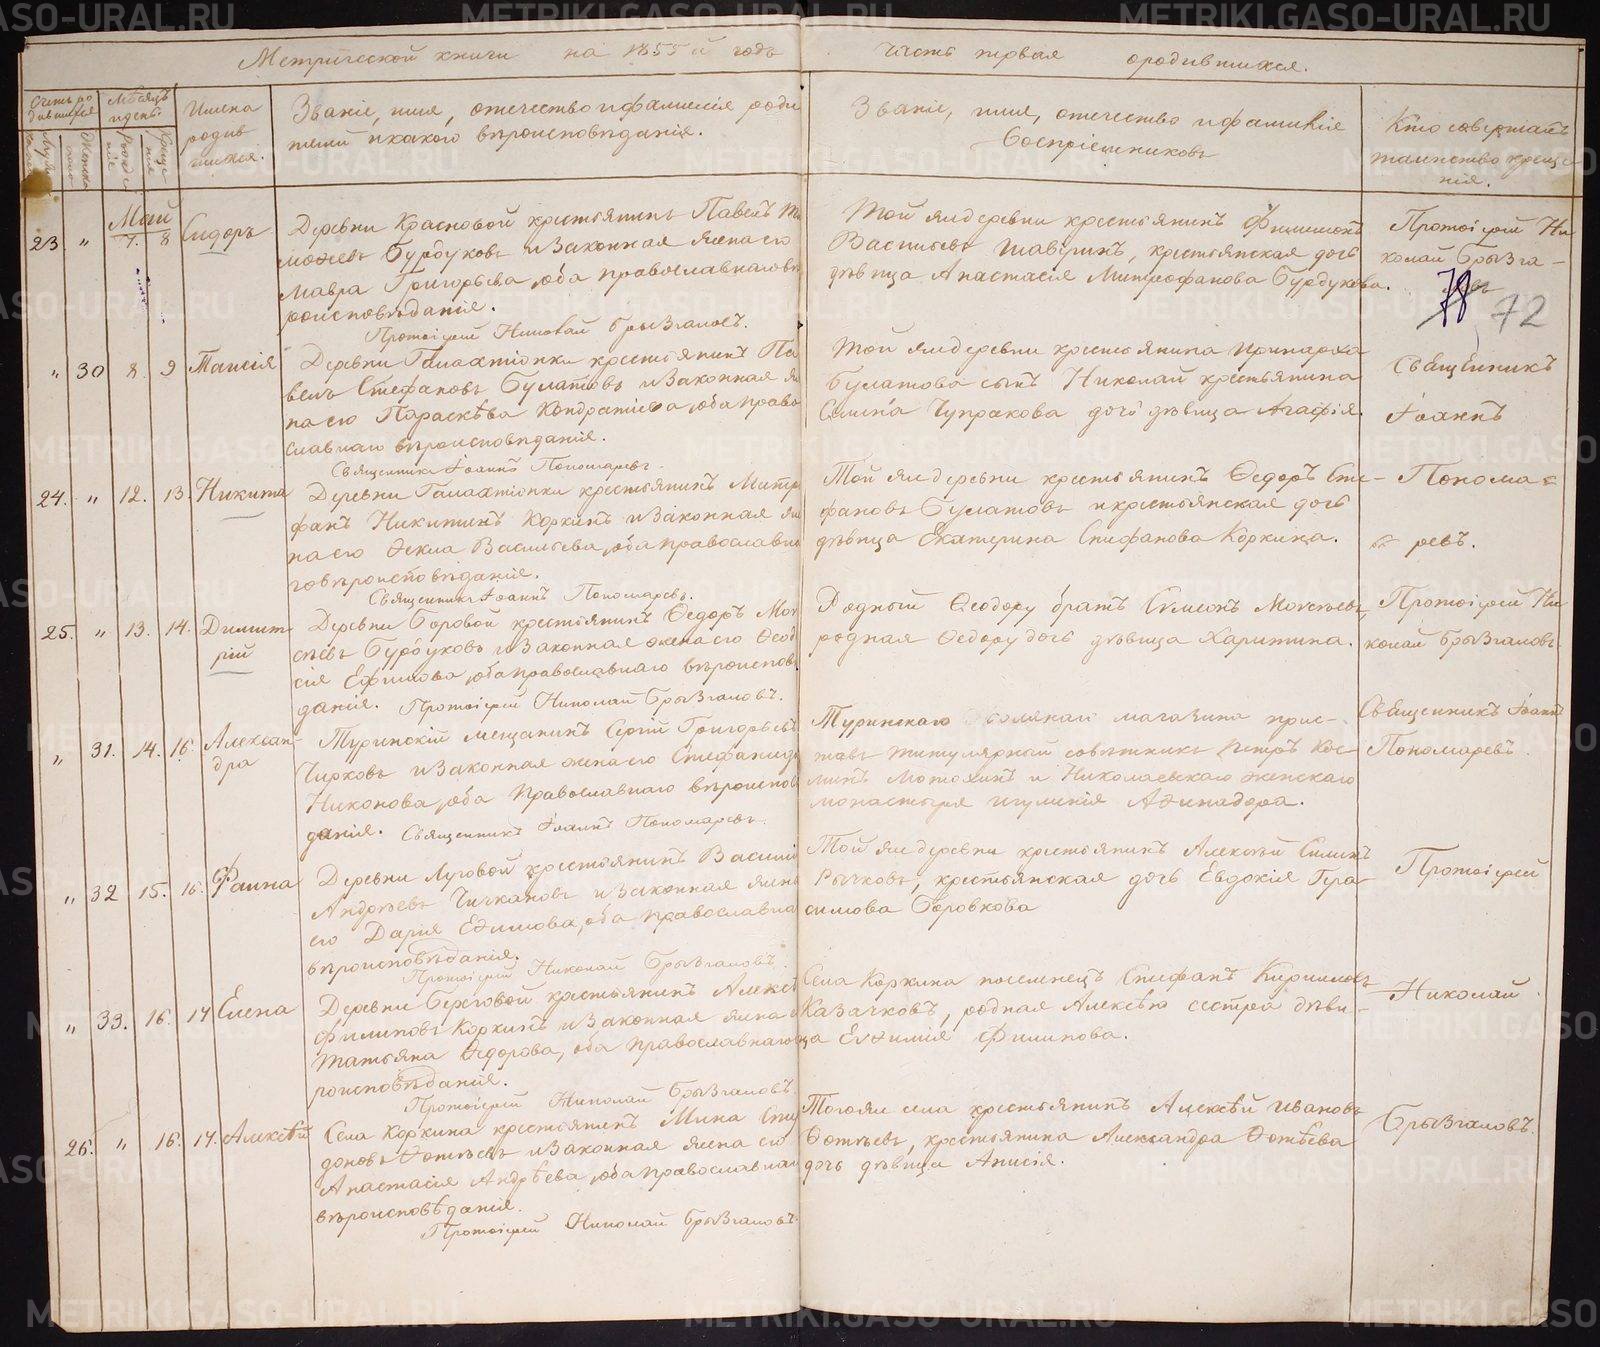 Метрической книги на 1855й годъ часть первая о родившихся.
Счетъ ро
дившихся
Мѣсяцъ
и день.
Имена
родив
шихся.
Званіе, имя, отечество и фамилія роди
телей и какого вѣроисповѣданія.
Званіе, имя, отечество и фамилія
воспріемниковъ
Кто совершалъ
таинство креще
нія.
Май
23 " 7. 8 Сидоръ
Деревни Красновой крестьянинъ Павелъ Ти
моѳеевъ Бурдуковъ и Законная жена его
Мавра Григорьева, оба православнаго вѣ
роисповѣданія.
Протоіерей Николай Брызгаловъ.
Той же деревни крестьянинъ Филимонъ
Васильевъ Шавринъ, крестьянская дочь
дѣвица Анастасія Митрофанова Бурдукова.
Протоіерей Ни
колай Брызга-
ловъ
78 72
" 30 8. 9 Таисія
Деревни Галактіонки крестьянинъ Па
велъ Стефановъ Булатовъ и Законная же
на его Параскѣва Кондратіева, оба право
славнаго вѣроисповѣданія.
Священникъ Іоаннъ Пономаревъ.
Той же деревни крестьянина Принарха
Булатова сынъ Николай крестьянина
Семена Чупракова дочь дѣвица Агафія.
Священникъ
Іоаннъ
24. " 12. 13. Никита
Деревни Галактіонки крестьянинъ Митро
фанъ Никитинъ Коркинъ и Законная же
на его Ѳекла Васильева, оба православна
го вѣроисповѣданія.
Священникъ Іоаннъ Пономаревъ.
Той же деревни крестьянинъ Ѳедоръ Сте-
фановъ Булатовъ и крестьянская дочь
дѣвица Екатерина Епифанова Коркина.
Понома
ревъ.
25. " 13. 14. Димит
рій
Деревни Боровой крестьянинъ Ѳедоръ Мои
сеевъ Бурдуковъ и Законная жена его Ѳеодо
сія Ефимова, оба православнаго вѣроисповѣ
данія. Протоіерей Николай Брызгаловъ.
Родный Ѳеодору братъ Симеонъ Моисеевъ,
родная Ѳедору дочь дѣвица Харитина.
Протоіерей Ни
колай Брызгаловъ.
" 31. 14. 16. Алексан-
дра
Туринскій мещанинъ Сергій Григорьевъ
Чирковъ и Законная жена его Стефанида
Никонова, оба Православнаго вѣроисповѣ
данія. Священникъ Іоаннъ Пономаревъ.
Туринскаго магазина прис-
тавъ титулярный совѣтникъ Петръ Кос-
минъ и Николаевскаго женскаго
монастыря игуменія Аѳинадора.
Священникъ Іоаннъ
Пономаревъ.
" 32 15. 16. Фаина
Деревни Луговой крестьянинъ Василій
Андреевъ Чичкановъ и Законная жена
его Дарія Ефимова, оба православнаго
вѣроисповѣданія.
Протоіерей Николай Брызгаловъ.
Той же деревни крестьянинъ Алексѣй Симинъ
Рычковъ, крестьянская дочь Евдокія Гера
симова Боровкова
Протоіерей
" 33. 16. 17 Елена
Деревни Береговой крестьянинъ Алексѣй
Филиповъ Коркинъ и Законная жена е
Татьяна Ѳедорова, оба православнаго вѣ
роисповѣданія.
Протоіерей Николай Брызгаловъ.
Села Коркина поселенецъ Епифанъ Кириловъ
Казачковъ, родная Алексѣю сестра дѣви-
ца Евѳимія Филипова.
Николай
26. " 16. 17. Алексѣй
Села Коркина крестьянинъ Мина Спи
доновъ Ѳотѣевъ и Законная жена его
Анастасія Андрѣева, оба православнаго
вѣроисповѣданія.
Протоіерей Николай Брызгаловъ.
Того же села крестьянинъ Алексѣй Ивановъ
Ѳотѣевъ, крестьянина Александра Ѳотѣева
дочь дѣвица Анисія.
Брызгаловъ.